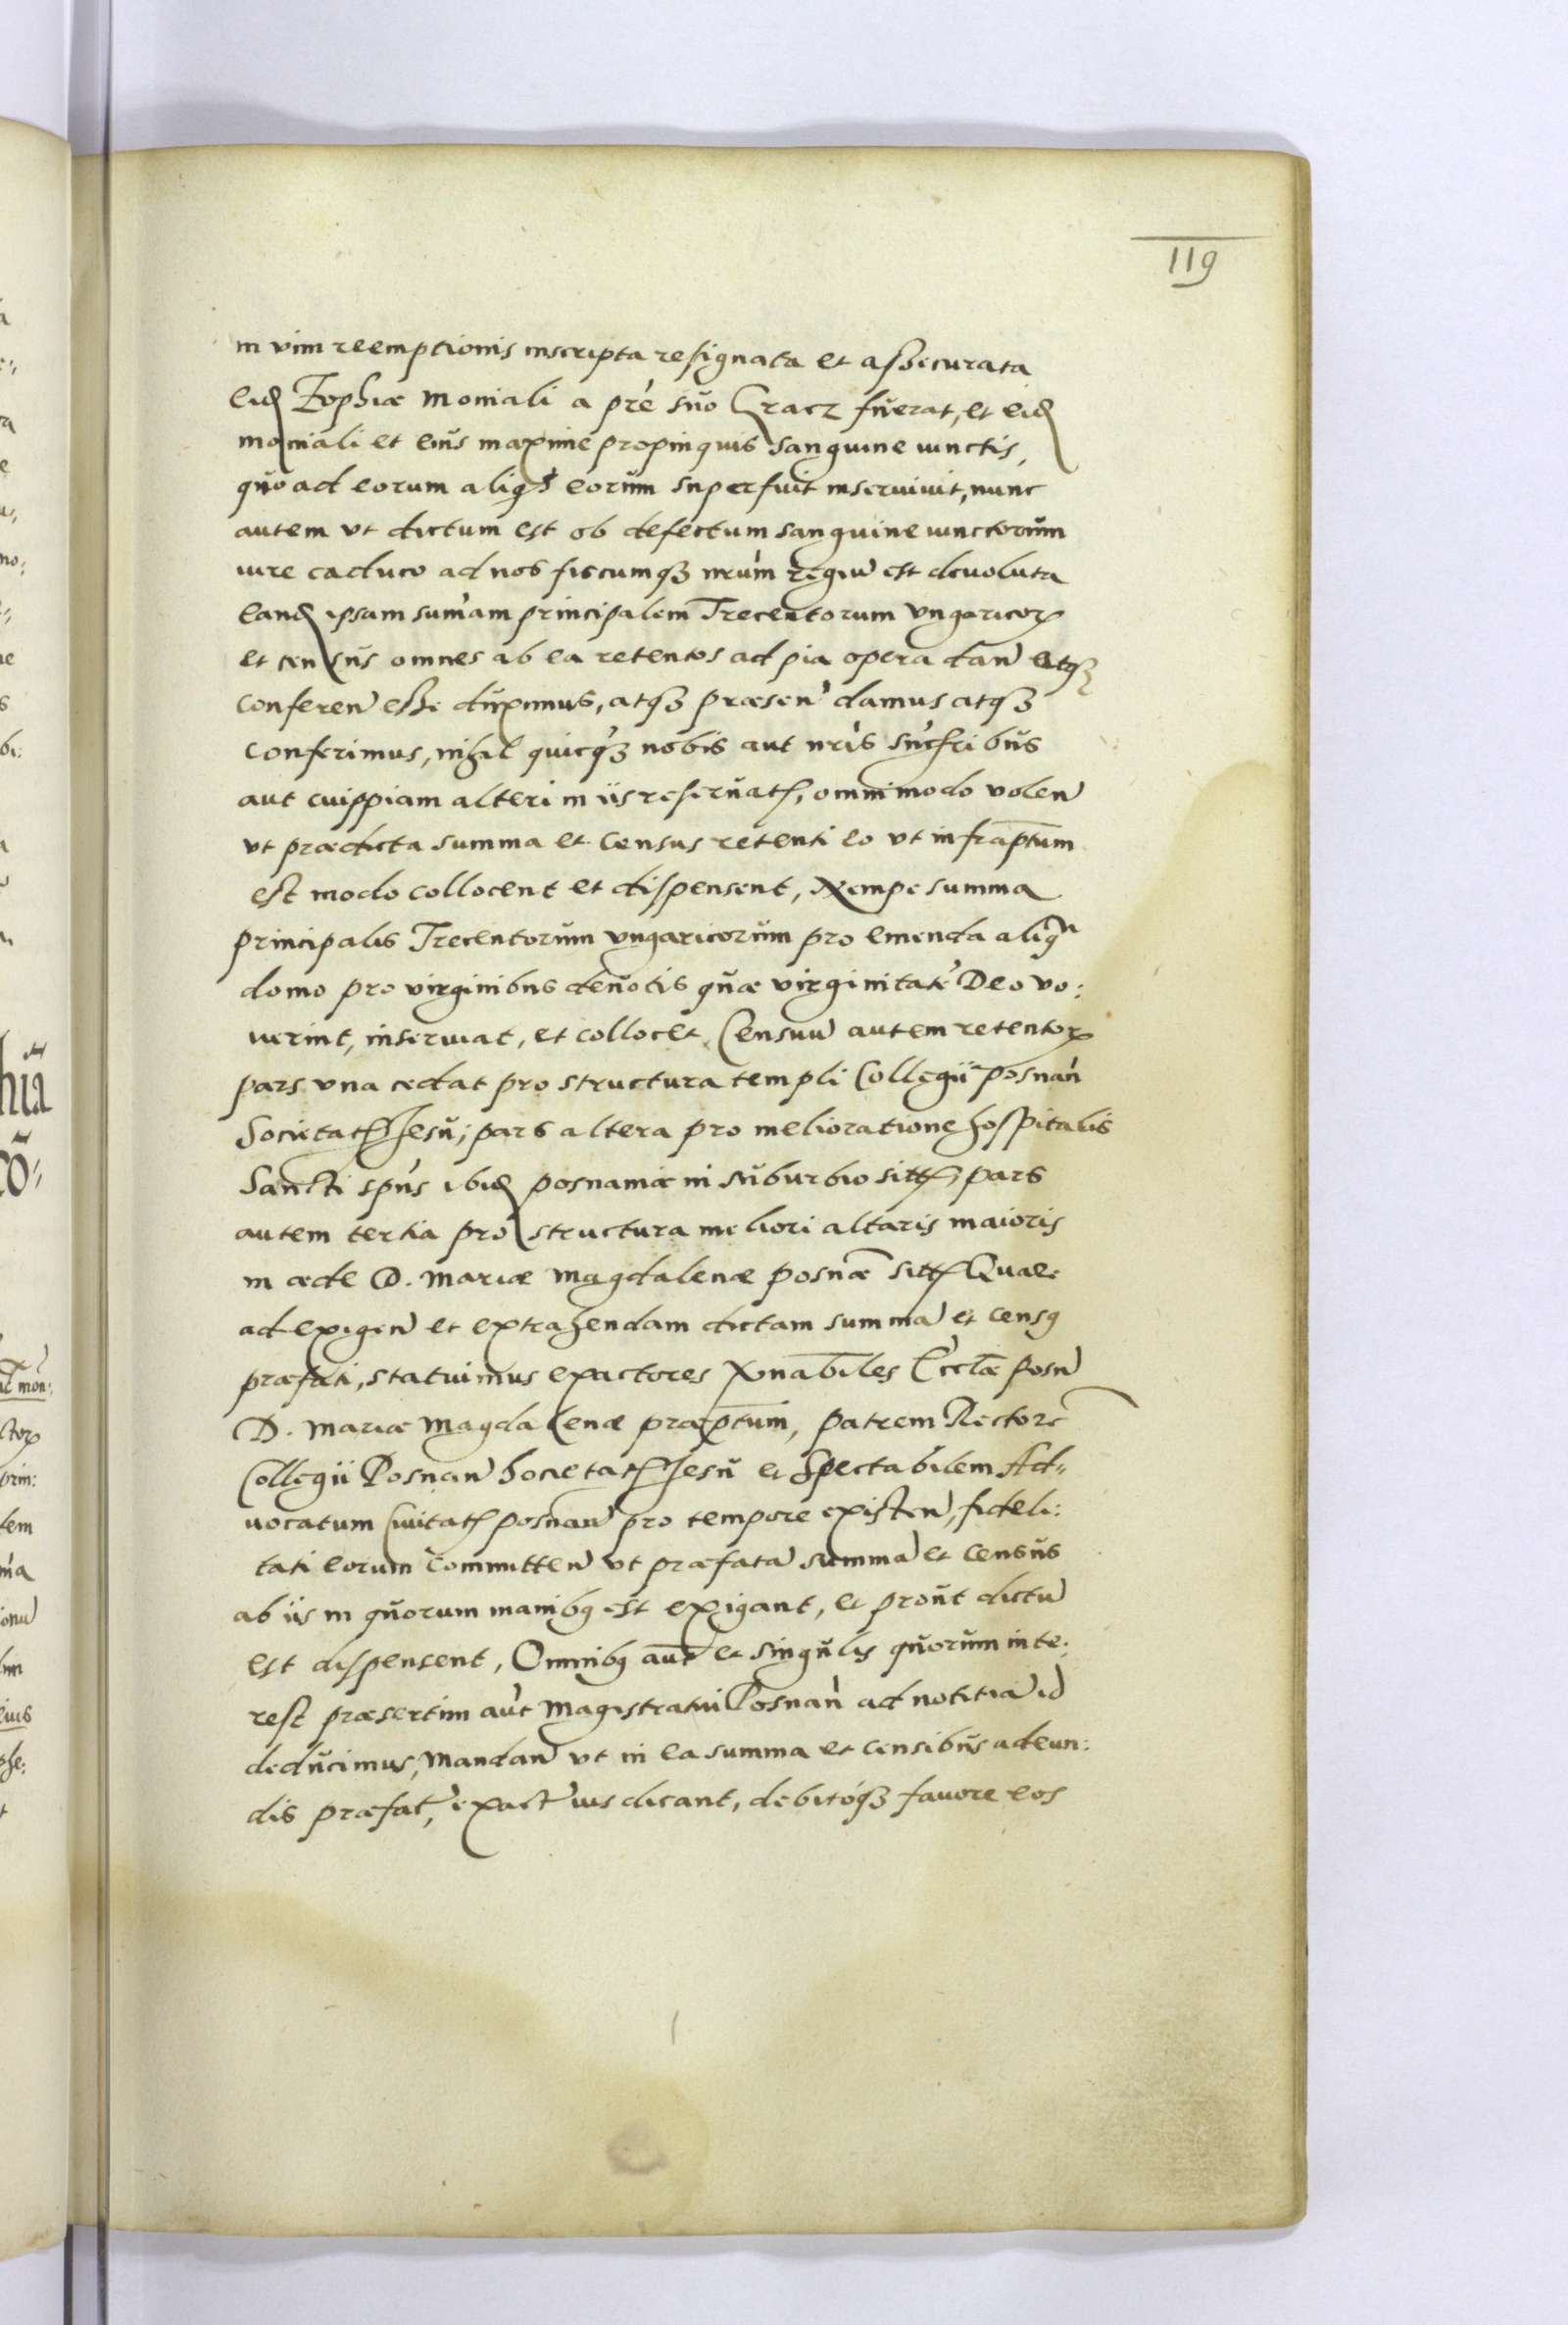 119
in vim reemptionis inscripta resignata et assecurata
eid Zophiæ Moniali a prè sùo Gracz fùerat, et eid
moniali et eiùs maxime propinquis sanguine iunctis,
qùo ad eorum aliqs eorùm superfuit inserviuit, nunc
autem vt dictum est ob defectum sanguine iunctorùm
iure caduco ad nos fiscumq3 nrùm regiũ est deuoluta
eand ipsam sum̃am principalem Trecentorum vngaricorꝝ
et censùs omnes ab ea retentos ad pia opera dañ atq3
conferen̄ esse dùximus, atq3 præsen̄ damus atq3
conferimus, nihil quicq̃3 nobis aut nr̃is sùc̃ribùs
aut cuippiam alteri in iis reserùatꝭ, omnimodo volen̄
vt prædicta summa et census retenti eo vt infrap̄tùm
est modo collocent et dispensent, Nempe summa
principalis Trecentorùm vngaricorùm pro emenda aliqa
domo pro virginibus deùotis qùæ virginitatẽ Deo vo:
uerint, inseruiat, et collocet, Censuũ autem retentorꝝ
pars vna cedat pro structura templi Collegii posnañ
Societatꝭ Jesù; pars altera pro melioratione hospitalis
Sancti spũs ibid posnaniæ in sùburbio sittꝭ, pars
autem tertia pro structura meliori altaris maioris
in æde D. Mariæ Magdalenæ posnæ̃ sittꝭ Quare
ad exigen̄ et extrahendam dictam summã et censꝰ
præfati, statuimus exactores Vēnabiles Ecclæ̃ Posn̄
D. Mariæ Magdalenæ præp̄tùm, patrem Rectorẽ
Collegii Posnañ Societatꝭ Jesù et Spectabilem Ad=
uocatum Ciuitatꝭ posnañ pro tempore existen̄, fideli:
tati eorum committen̄ vt præfatã summã et censùs
ab iis in qùorum manibꝰ est exigant, et proùt dictũ
est dispensent, Omnibꝰ aut̃ et singùlis qùorùm inte:
rest præsertim aùt Magistratui Posnañ ad notitiã id
dedùcimus, Mandan̄ vt in ea summa et censibùs adeun:
dis præfat̃, exact̃ ius dicant, debitoq3 fauore eos